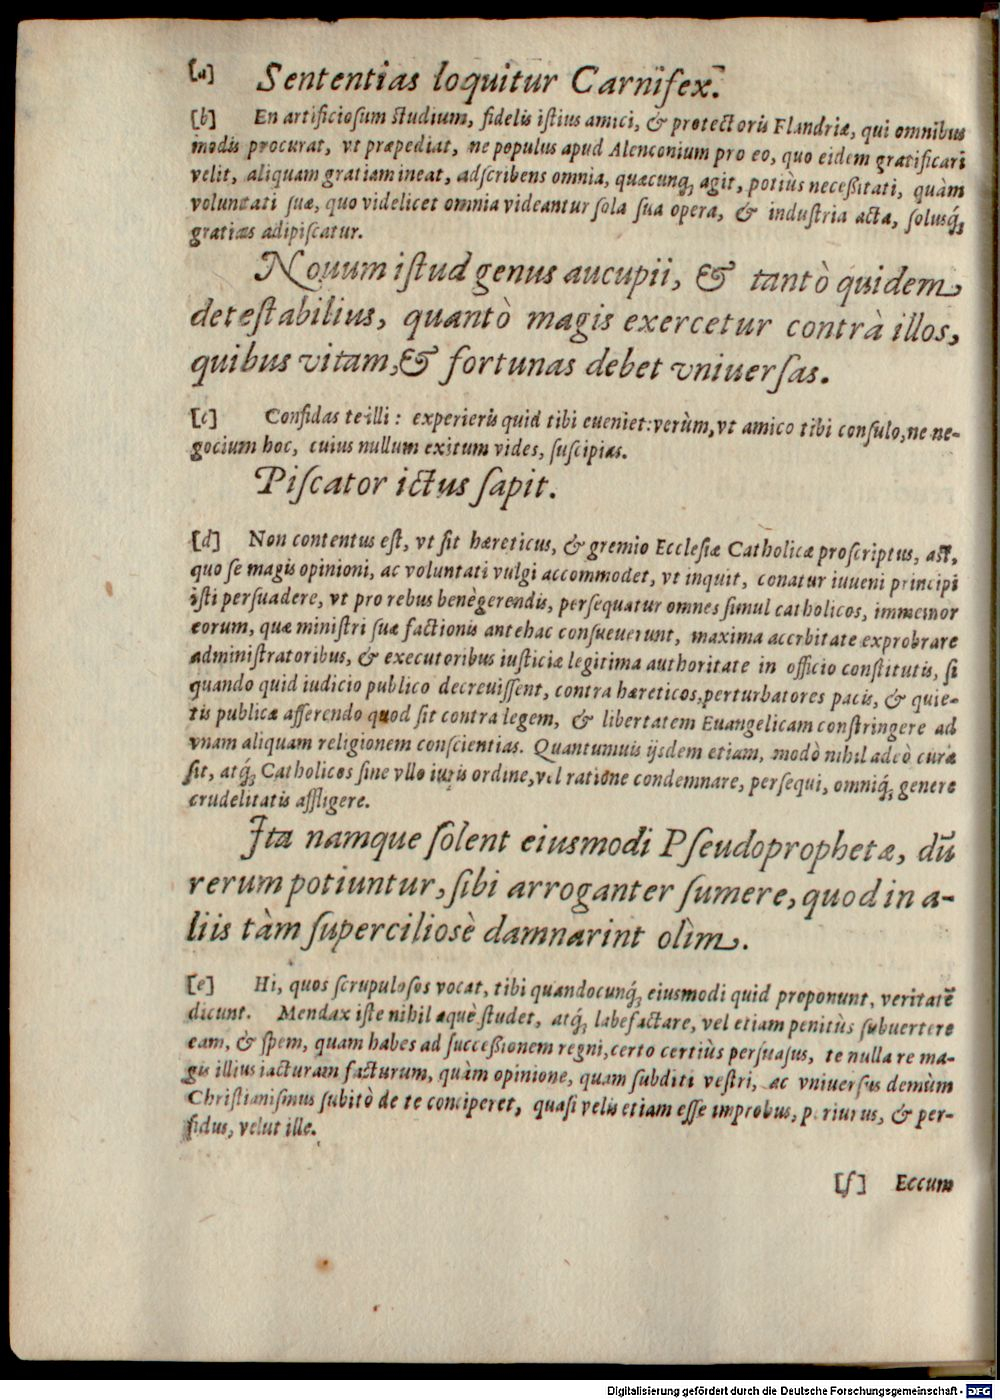 [a] Sententias loquitur Carnifex.
[b] En artificiosum studium, fidelis istius amici, & protectoris Flandriæ, qui omnibus
modis procurat, vt præpediat, ne populus apud Alenconium pro eo, quo eidem gratificari
velit, aliquam gratiam ineat, adscribens omnia, quæcunq́; agit, potiùs neceßitati, quàm
voluntati suæ, quo videlicet omnia videantur sola sua opera, & industria acta, solusq́;
gratias adipiscatur.
Nouum istud genus aucupii, & tantò quidem
detestabilius, quantò magis exercetur contrà illos,
quibus vitam, & fortunas debet vniuersas.
[c] Confidas te illi: experieris quid tibi eueniet: verùm, vt amico tibi consulo, ne ne-
gocium hoc, cuius nullum exitum vides, suscipias.
Piscator ictus sapit.
[d] Non contentus est, vt sit hæreticus, & gremio Ecclesiæ Catholicæ proscriptus, ast,
quo se magis opinioni, ac voluntati vulgi accommodet, vt inquit, conatur iuueni principi
isti persuadere, vt pro rebus benègerendis, persequatur omnes simul catholicos, immemor
eorum, quæ ministri suæ factionis antehac consueuerunt, maxima accrbitate exprobrare
administratoribus, & executoribus iusticiæ legitima authoritate in officio constitutis, si
quando quid iudicio publico decreuissent, contra hæreticos, perturbatores pacis, & quie-
tis publicæ afferendo quod sit contra legem, & libertatem Euangelicam constringere ad
vnam aliquam religionem conscientias. Quantumuis ijsdem etiam, modò nihil adeò curæ
sit, atq́; Catholicos sine vllo iuris ordine, vel ratione condemnare, persequi, omniq́; genere
crudelitatis affligere.
Ita namque solent eiusmodi Pseudoprophetæ, dū
rerum potiuntur, sibi arroganter sumere, quod in a-
liis tàm superciliosè damnarint olim.
[e] Hi, quos scrupulosos vocat, tibi quandocunq́; eiusmodi quid proponunt, veritatē
dicunt. Mendax iste nihil æquè studet, atq́; labefactare, vel etiam penitùs subuertere
eam, & spem, quam habes ad succeßionem regni, certo certiùs persuasus, te nulla re ma-
gis illius iacturam facturum, quàm opinione, quam subditi vestri, ac vniuersus demùm
Christianismus subitò de te conciperet, quasi velis etiam esse improbus, periurus, & per-
fidus, velut ille.
[f] Eccum
Digitalisierung gefördert durch die Deutsche Forschungsgemeinschaft - DFG